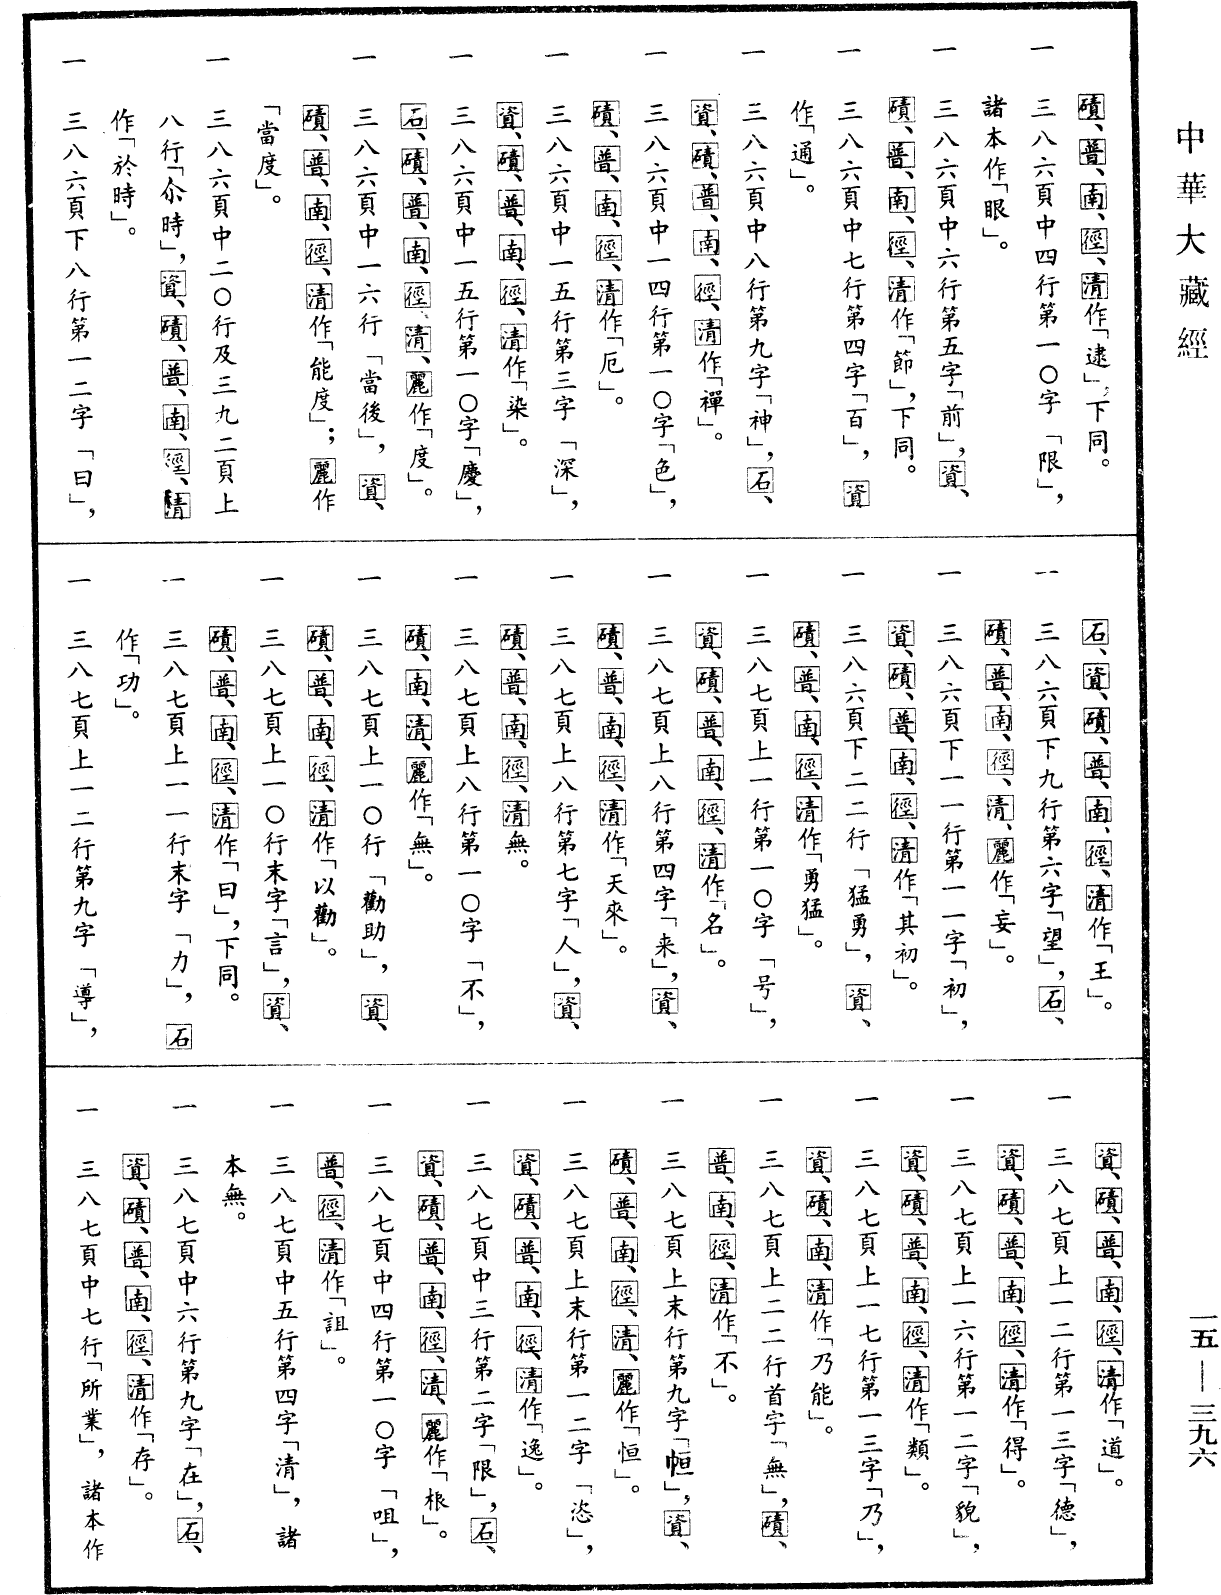 中華大藏經
磧、普、南、徑、清作「逮」,下同。
一 三八六頁中四行第一〇字「限」,
諸本作「眼」。
一 三八六頁中六行第五字「前」,資、
磧、普、南、徑、清作「節」,下同。
一 三八六頁中七行第四字「百」,資
作「通」。
一 三八六頁中八行第九字「神」,石、
資、磧、普、南、徑、清作「禪」。
一 三八六頁中一四行第一〇字「色」,
磧、普、南、徑、清作「厄」。
一 三八六頁中一五行第三字「深」,
資、磧、普、南、徑、清作「染」。
一 三八六頁中一五行第一〇字「慶」,
石、磧、普、南、徑、清、麗作「度」。
一 三八六頁中一六行「當後」,資、
磧、普、南、徑、清作「能度」;麗作
「當度」。
一 三八六頁中二〇行及三九二頁上
八行「尒時」,資、磧、普、南、徑、清
作「於時」。
一 三八六頁下八行第一二字「曰」,
石、資、磧、普、南、徑、清作「王」。
一 三八六頁下九行第六字「望」,石、
磧、普、南、徑、清、麗作「妄」。
一 三八六頁下一一行第一一字「初」,
資、磧、普、南、徑、清作「其初」。
一 三八六頁下二二行「猛勇」,資、
磧、普、南、徑、清作「勇猛」。
一 三八七頁上一行第一〇字「号」,
資、磧、普、南、徑、清作「名」。
一 三八七頁上八行第四字「来」,資、
磧、普、南、徑、清作「天來」。
一 三八七頁上八行第七字「人」,資、
磧、普、南、徑、清無。
一 三八七頁上八行第一〇字「不」,
磧、南、清、麗作「無」。
一 三八七頁上一〇行「勸助」,資、
磧、普、南、徑、清作「以勸」。
一 三八七頁上一〇行末字「言」,資、
磧、普、南、徑、清作「曰」,下同。
一 三八七頁上一一行末字「力」,石
作「功」。
一 三八七頁上一二行第九字「導」,
資、磧、普、南、徑、清作「道」。
一 三八七頁上一二行第一三字「德」,
資、磧、普、南、徑、清作「得」。
一 三八七頁上一六行第一二字「貌」,
資、磧、普、南、徑、清作「類」。
一 三八七頁上一七行第一三字「乃」,
資、磧、南、清作「乃能」。
一 三八七頁上二二行首字「無」,磧、
普、南、徑、清作「不」。
一 三八七頁上末行第九字「恒」,資、
磧、普、南、徑、清、麗作「恒」。
一 三八七頁上末行第一二字「恣」,
資、磧、普、南、徑、清作「逸」。
一 三八七頁中三行第二字「限」,石、
資、磧、普、南、徑、清、麗作「根」。
一 三八七頁中四行第一〇字「咀」,
普、徑、清作「詛」。
一 三八七頁中五行第四字「清」,諸
本無。
一 三八七頁中六行第九字「在」,石、
資、磧、普、南、徑、清作「存」。
一 三八七頁中七行「所業」,諸本作
一五—三九六